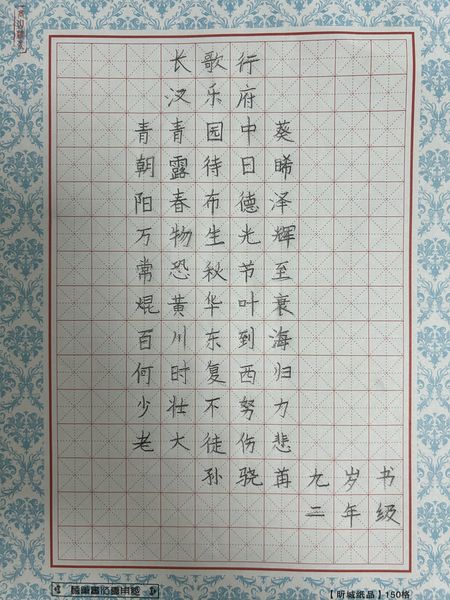 长歌行
汉乐府
青青园中葵
朝露待日晞
阳春布德泽
万物生光辉
常恐秋节至
焜黄华叶衰
百川东到海
何时复西归
少壮不努力
老大徒伤悲
孙骁苒九岁书
二年级
【昕城纸品】150格